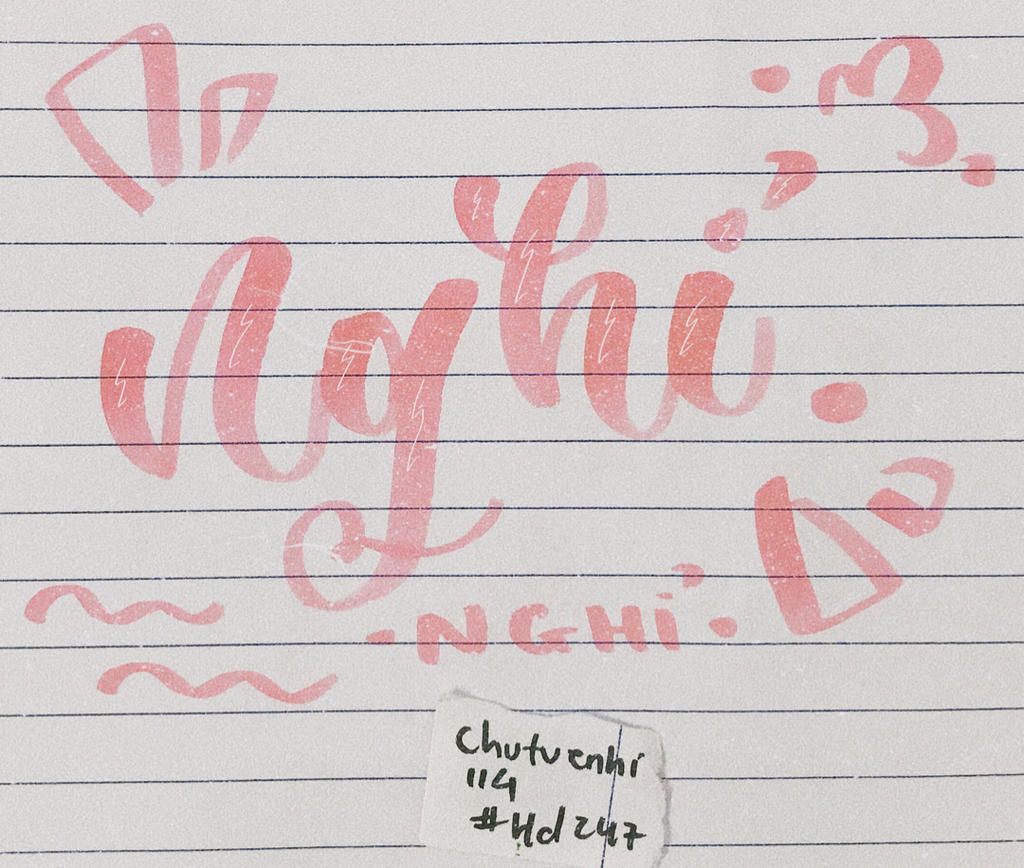 Nghỉ.
·NGHỉ·
Chutuenhi
114
#Hd247